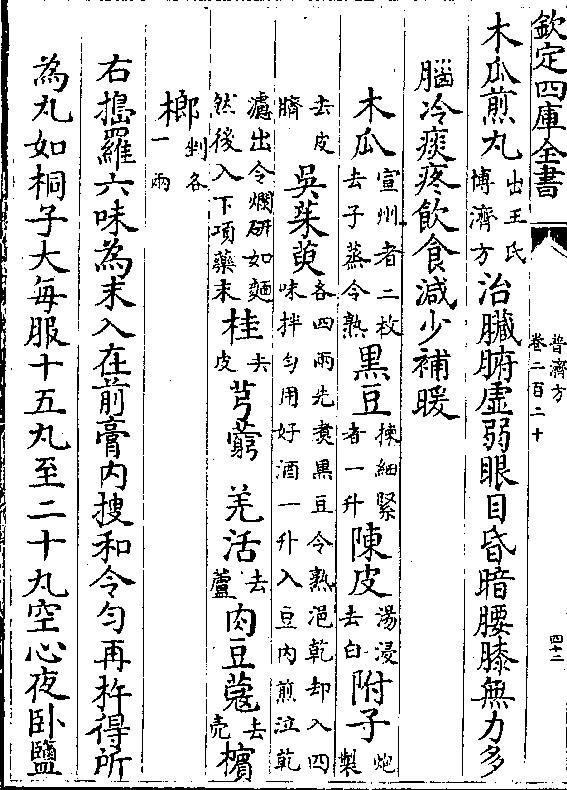 欽定四庫全書
普濟方
卷二百二十
四十二
木瓜煎丸出王氏博濟方治臟腑虛弱眼目昏暗腰膝無力多
腦冷痰疼飲食減少補暖
木瓜宣州者二枚去子蒸令熟黑豆揀細緊者一升陳皮湯浸去白附子炮製
去皮臍吳茱萸各四兩先煑黑豆令熟浥乾却入四味拌勻用好酒一升入豆內煎泣乾
濾出令爛研如麵然後入下項藥末桂去皮芎藭羌活去蘆肉豆蔻去壳檳
榔剉各一兩
右搗羅六味為末入在前膏內搜和令勻再杵得所
為丸如桐子大每服十五丸至二十丸空心夜卧鹽